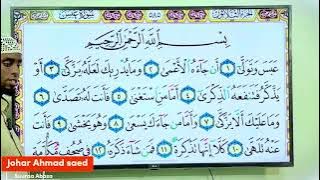 سورة عبس
٥٨٥
بِسْمِ اللَّهِ الرَّحْمَٰنِ الرَّحِيمِ
عَبَسَ وَتَوَلَّىٰ ١ أَن جَاءَهُ الْأَعْمَىٰ ٢ وَمَا يُدْرِيكَ لَعَلَّهُ يَزَّكَّىٰ ٣ أَوْ
يَذَّكَّرُ فَتَنفَعَهُ الذِّكْرَىٰ ٤ أَمَّا مَنِ اسْتَغْنَىٰ ٥ فَأَنتَ لَهُ تَصَدَّىٰ ٦
وَمَا عَلَيْكَ أَلَّا يَزَّكَّىٰ ٧ وَأَمَّا مَن جَاءَكَ يَسْعَىٰ ٨ وَهُوَ يَخْشَىٰ ٩ فَأَنتَ
عَنْهُ تَلَهَّىٰ ١٠ كَلَّا إِنَّهَا تَذْكِرَةٌ ١١ فَمَن شَاءَ ذَكَرَهُ ١٢ فِي صُحُفٍ مُّكَرَّمَةٍ
Johar Ahmad saed
Suurao Abasa